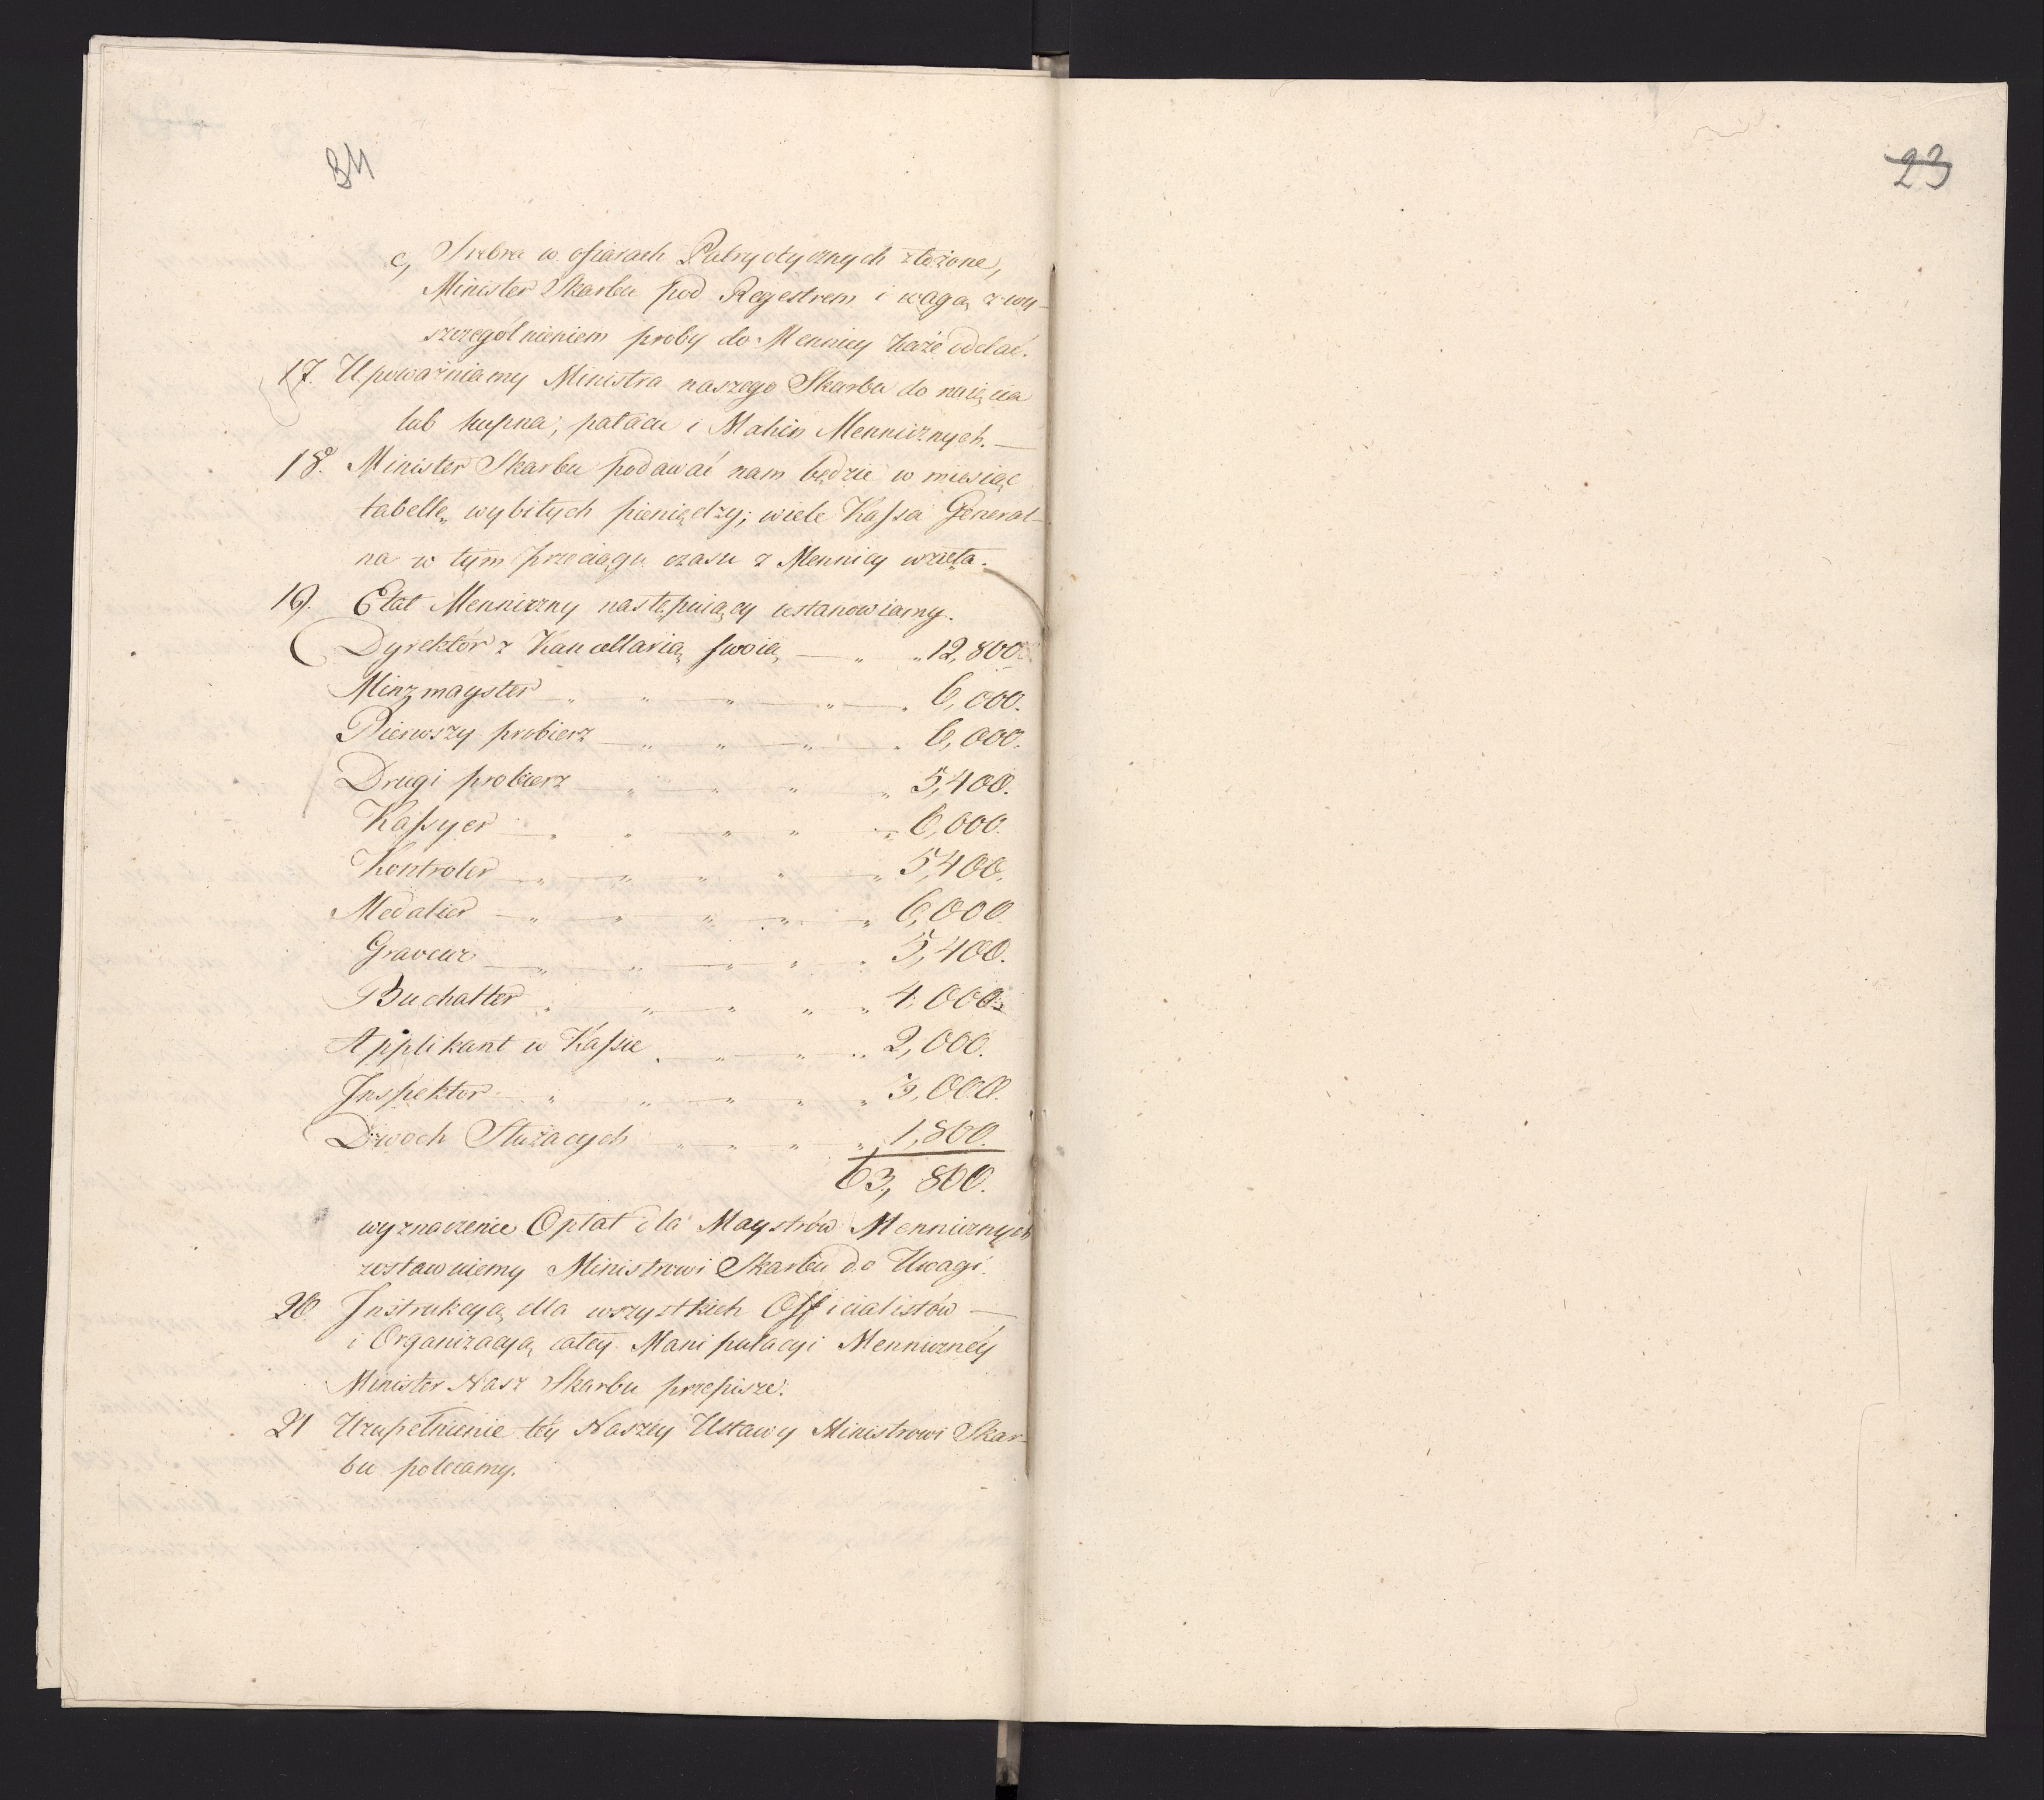 34
23
c, Srebra w ofiarach Patryotycznych złożone,
Minister Skarbu pod Regestrem i wagą z wy-
szczególnieniem proby do Mennicy każe oddać.
17. Upoważniamy Ministra naszego Skarbu do naięcia
lub kupna, pałacu i Mahin Mennicznych. —
18. Minister Skarbu podawać nam będzie w miesiąc
tabellę wybitych pieniędzy; wiele Kassa General-
na w tym przeciągu czasu z Mennicy wzięła.
19. Etat Menniczny następuiący ustanowiamy.
Dyrektór z Kancellarią swoią — " " 12,800
Minzmayster " " " " 6,000.
Pierwszy probierz " " " " 6,000.
Drugi probierz " " " " 5,400.
Kassyer " " " " 6,000.
Kontroler " " " " " 5,400.
Medalier " " " " " 6,000.
Graveur " " " " " 5,400.
Buchalter " " " " " 4,000.
Applikant w Kassie " " " " 2,000.
Inspektor " " " " " 3,000.
Dwoch Służacych " " " " 1,800.
63,800.
wyznaczenie Opłat dla Maystrów Mennicznych
zostawuiemy Ministrowi Skarbu do Uwagi.
20 Instrukcyą dla wszystkich Officialistów —
i Organizacyą całey Manipulacyi Menniczney
Minister Nasz Skarbu przepisze.
21 Uzupełnienie téy Naszey Ustawy Ministrowi Skar-
bu polecamy.